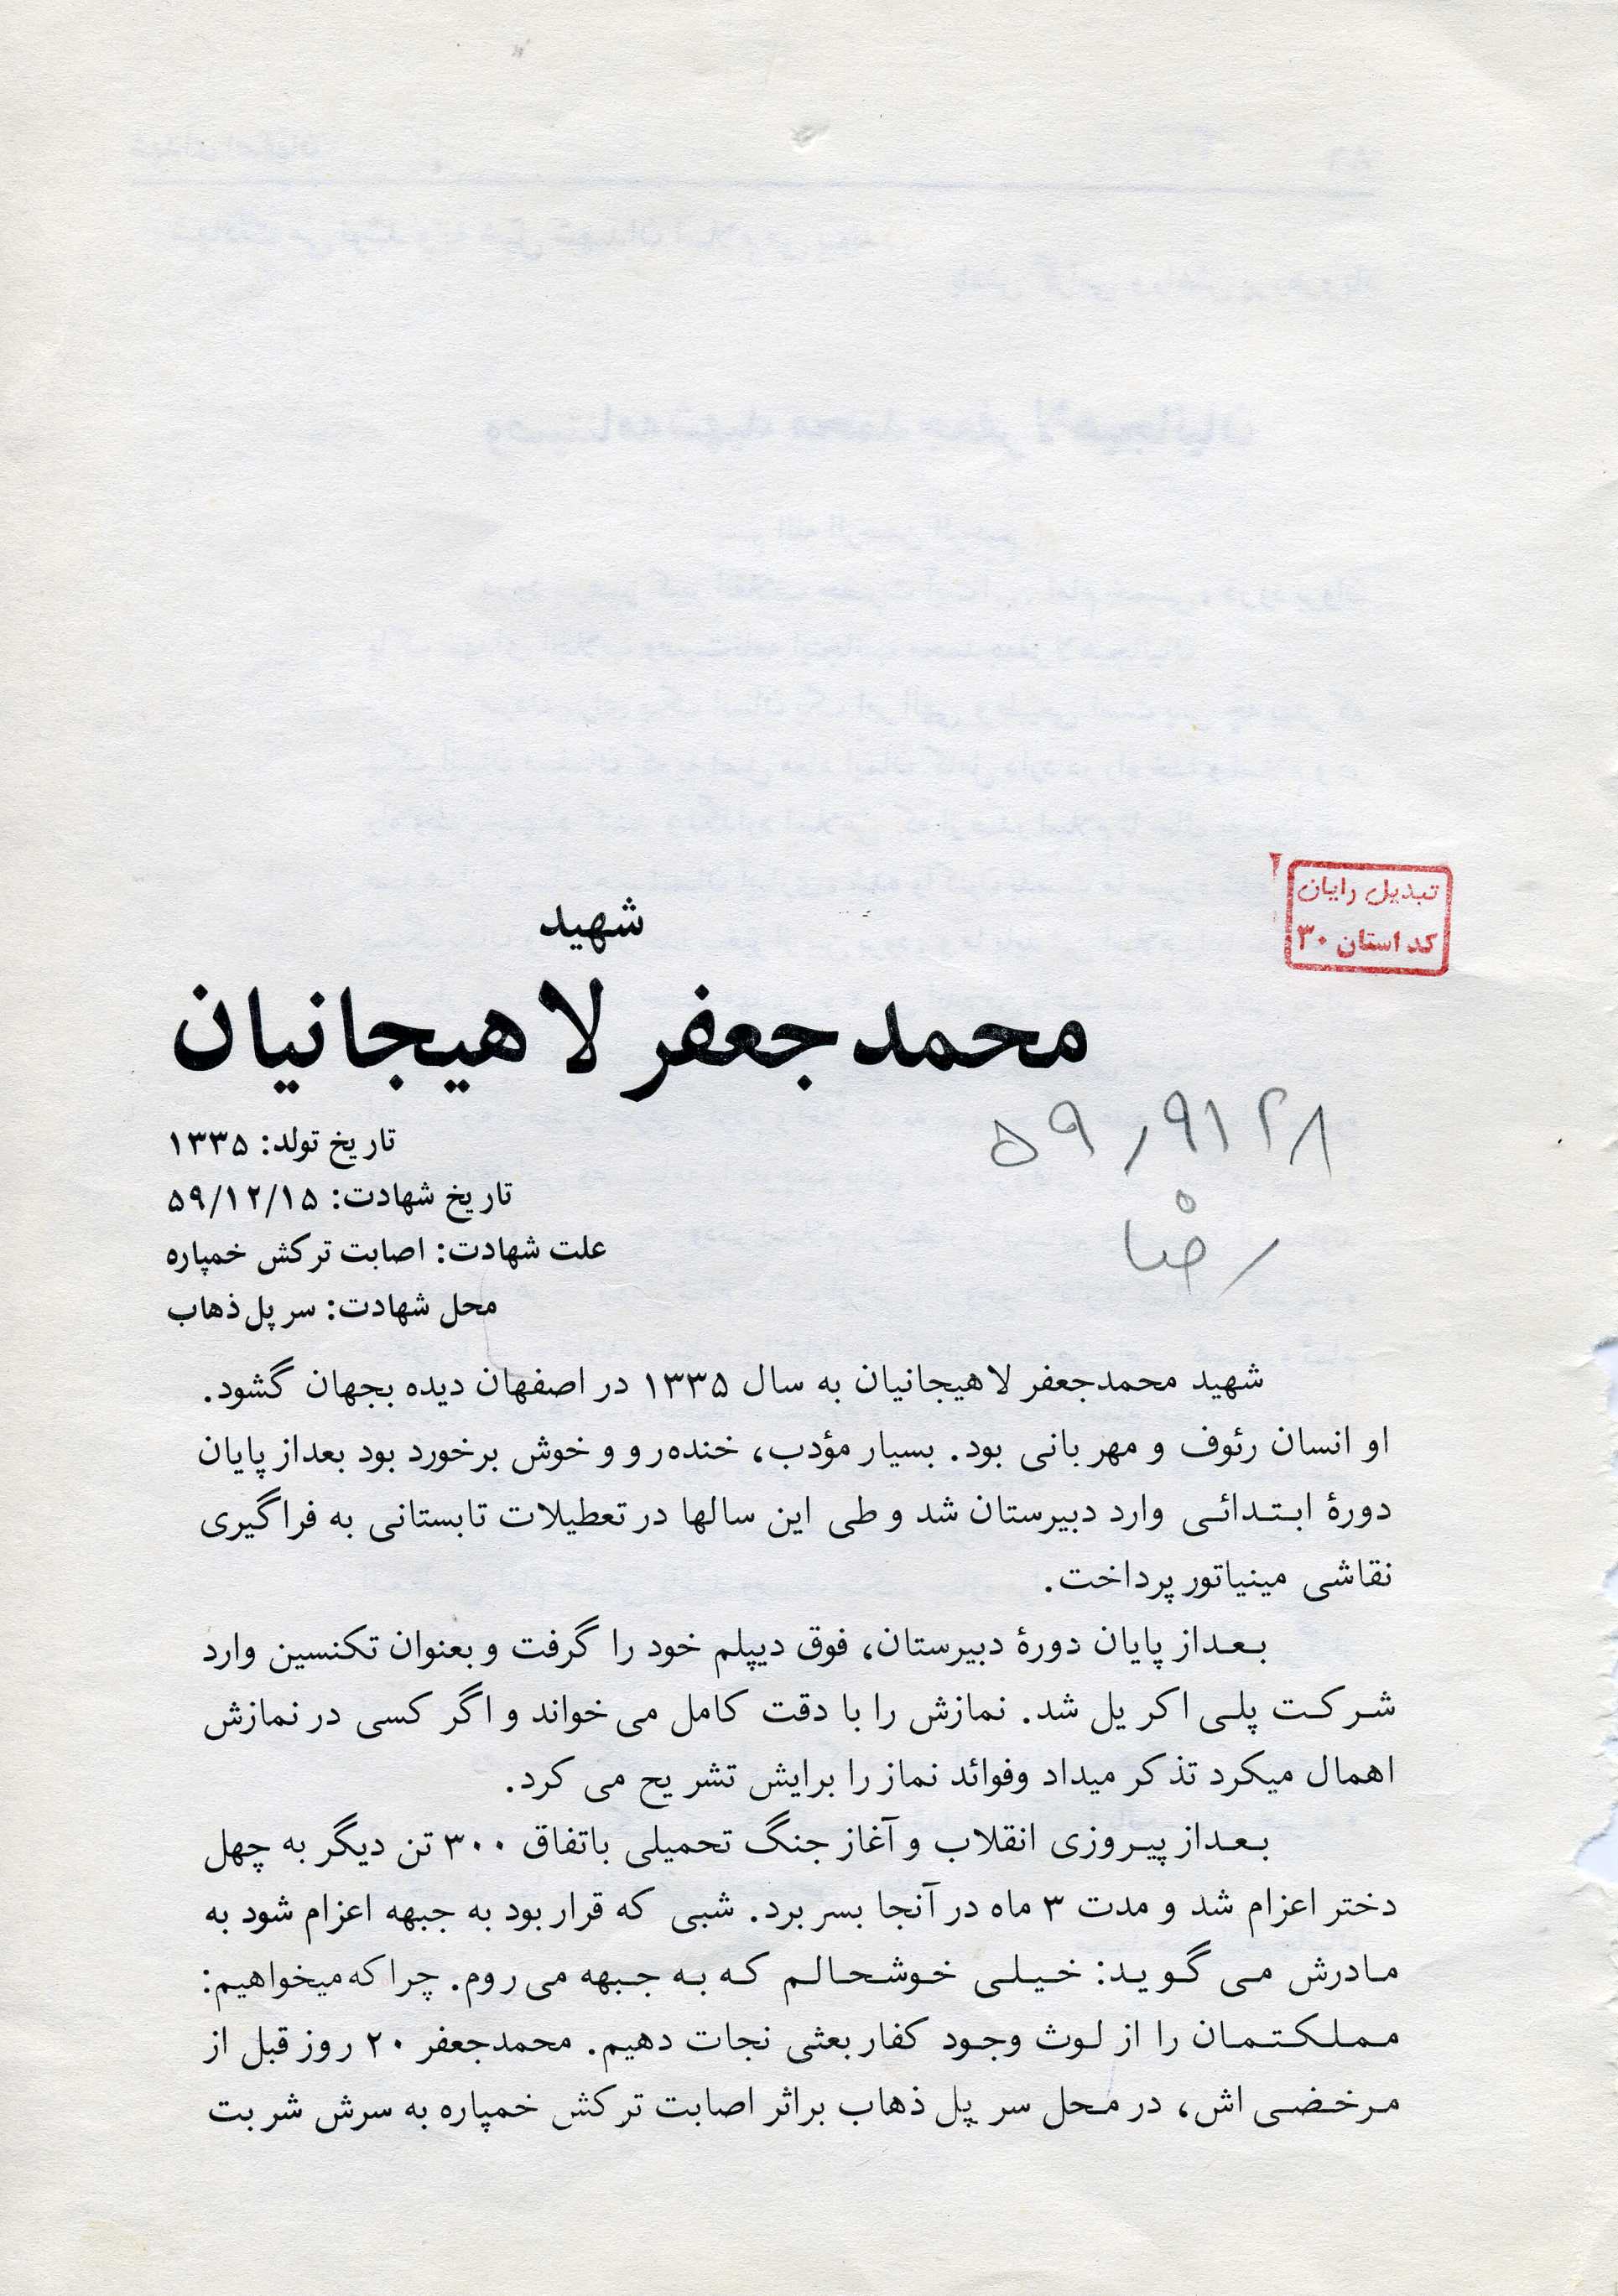 تبدیل رایان
کد استان ۳۰
شهید
محمدجعفر لاهیجانیان
۵۹ر۹۱۲۸
رضا
تاریخ تولد: ۱۳۳۵
تاریخ شهادت: ۵۹/۱۲/۱۵
علت شهادت: اصابت ترکش خمپاره
محل شهادت: سر پل ذهاب
شهید محمدجعفر لاهیجانیان به سال ۱۳۳۵ در اصفهان دیده بجهان گشود.
او انسان رئوف و مهربانی بود. بسیار مؤدب، خنده‌رو و خوش برخورد بود بعداز پایان
دورهٔ ابتدائی وارد دبیرستان شد و طی این سالها در تعطیلات تابستانی به فراگیری
نقاشی مینیاتور پرداخت.
بعداز پایان دورهٔ دبیرستان، فوق دیپلم خود را گرفت و بعنوان تکنسین وارد
شرکت پلی اکریل شد. نمازش را با دقت کامل می خواند و اگر کسی در نمازش
اهمال میکرد تذکر میداد وفوائد نماز را برایش تشریح می کرد.
بعداز پیروزی انقلاب و آغاز جنگ تحمیلی باتفاق ۳۰۰ تن دیگر به چهل
دختر اعزام شد و مدت ۳ ماه در آنجا بسر برد. شبی که قرار بود به جبهه اعزام شود به
مادرش می گوید: خیلی خوشحالم که به جبهه می روم. چرا که میخواهیم:
مملکتمان را از لوث وجود کفار بعثی نجات دهیم. محمدجعفر ۲۰ روز قبل از
مرخضی اش، در محل سر پل ذهاب براثر اصابت ترکش خمپاره به سرش شربت